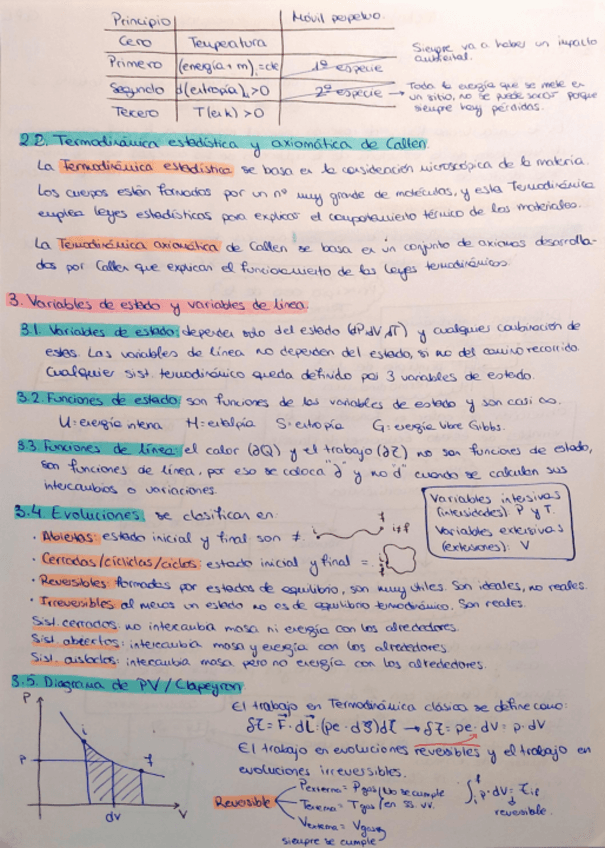 Principio Móvil perpetuo.
Cero Temperatura
Primero (energía + m)ᵢ = cte 1ª especie
Siempre va a haber un impacto
ambiental.
Segundo d(entropía)ᵢ > 0 2ª especie → Toda la energía que se mete en
un sitio, no se puede sacar porque
siempre hay pérdidas.
Tercero T(en k) > 0
2.2. Termodinámica estadística y axiomática de Callen.
La Termodinámica estadística se basa en la consideración microscópica de la materia.
Los cuerpos están formados por un nº muy grande de moléculas, y esta Termodinámica
emplea leyes estadísticas para explicar el comportamiento térmico de los materiales.
La Termodinámica axiomática de Callen se basa en un conjunto de axiomas desarrolla-
dos por Callen que explican el funcionamiento de las leyes termodinámicas.
3. Variables de estado y variables de línea.
3.1. Variables de estado: dependen solo del estado (dP, dV, dT) y cualquier combinación de
estas. Las variables de línea no dependen del estado, si no del camino recorrido.
Cualquier sist. termodinámico queda definido por 3 variables de estado.
3.2. Funciones de estado: son funciones de las variables de estado y son casi ∞.
U = energía interna H = entalpía S = entropía G = energía libre Gibbs.
3.3 Funciones de línea: el calor (∂Q) y el trabajo (∂Z) no son funciones de estado,
son funciones de línea, por eso se coloca "∂" y no "d" cuando se calculan sus
intercambios o variaciones.
3.4 Evoluciones: se clasifican en:
Variables intensivas
(intensidades): P y T.
Variables extensivas
(extensiones): V
· Abiertas: estado inicial y final son ≠. i f i≠f
· Cerradas/cíclicas/ciclos: estado inicial y final =. i f
· Reversibles: formadas por estados de equilibrio, son muy útiles. Son ideales, no reales.
· Irreversibles: al menos un estado no es de equilibrio termodinámico. Son reales.
Sist. cerrados: no intercambia masa ni energía con los alrededores.
Sist. abiertos: intercambia masa y energía con los alrededores.
Sist. aislados: intercambia masa pero no energía con los alrededores.
3.5. Diagrama de PV / Clapeyron
P i f P dV V
El trabajo en Termodinámica clásica se define como:
δZ = F · dL = (pe · dS) dL → δZ = pe · dV = p · dV
El trabajo en evoluciones reversibles y el trabajo en
evoluciones irreversibles.
Reversible
Pexterna = Pgas
Texterna = Tgas
No se cumple
en ss. vv.
Vexterna = Vgas
siempre se cumple
∫ᵢᶠ p · dV = Zif
reversible.